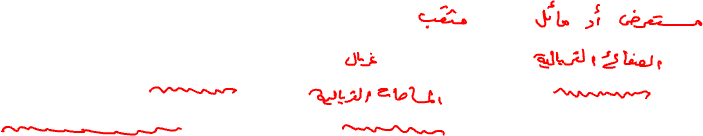 مستعرض أو مائل مثقب
الصفائح الغربالية غربال
المساحات الغربالية